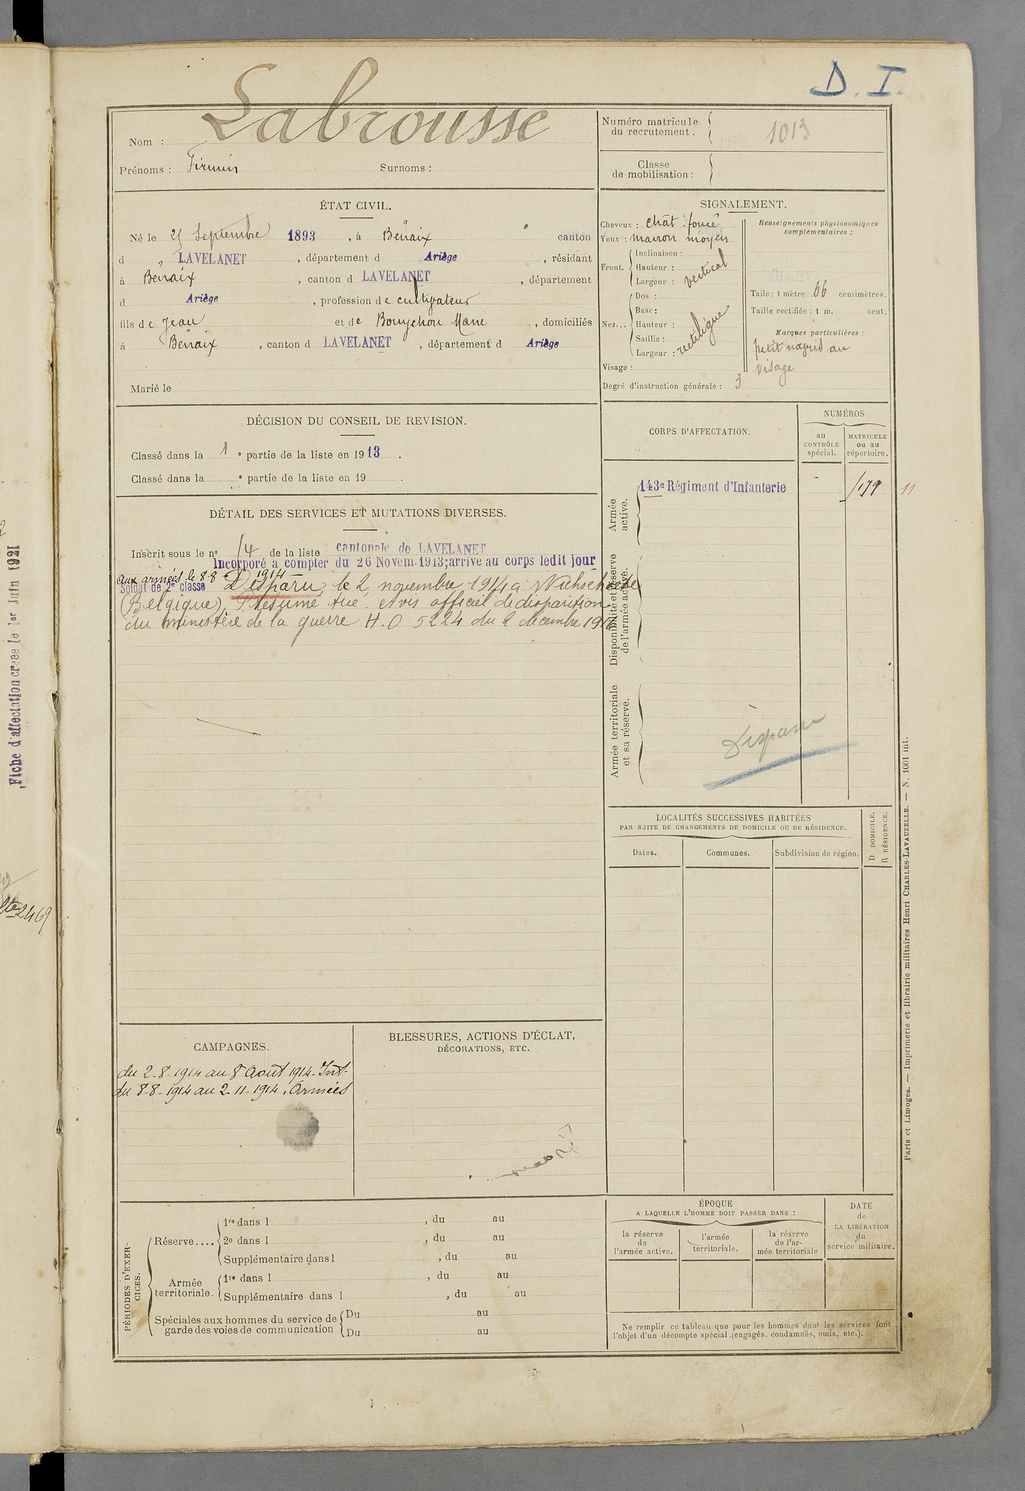 D. I.
Nom : Labrousse
Prénoms : Firmin Surnoms :
Numéro matricule du recrutement. 1013
Classe de mobilisation :
ÉTAT CIVIL.
Né le 25 Septembre 1893, à Benaix canton
d LAVELANET, département d Ariège, résidant
à Benaix, canton d LAVELANET, département
d Ariège, profession de cultivateur
fils de Jean et de Bouychou Marie, domiciliés
à Benaix, canton d LAVELANET, département d Ariège
Marié le
SIGNALEMENT.
Cheveux : chât. foncé
Yeux : marron moyen
Front. Inclinaison :
Hauteur : vertical
Largeur :
Nez... Dos :
Base :
Hauteur : rectiligne
Saillie :
Largeur :
Visage :
Degré d'instruction générale : 3
Renseignements physionomiques complémentaires :
Taille : 1 mètre 66 centimètres.
Taille rectifiée : 1 m. cent.
Marques particulières :
petit au
visage
DÉCISION DU CONSEIL DE REVISION.
Classé dans la 1 e partie de la liste en 1913.
Classé dans la e partie de la liste en 19 .
DÉTAIL DES SERVICES ET MUTATIONS DIVERSES.
Inscrit sous le no 14 de la liste cantonale de LAVELANET
Incorporé à compter du 26 Novem. 1913; arrivé au corps ledit jour
aux armées le 8-8 1914
Soldat de 2e classe Disparu le 2 novembre 1914 à
(Belgique), Présumé tué. Avis officiel de disparition
du ministère de la guerre H.O 5224 du 2 décembre
CORPS D'AFFECTATION.
NUMÉROS
au CONTRÔLE spécial.
MATRICULE ou au répertoire.
Armée active.
143e Régiment d'Infanterie
179
11
Disponibilité et réserve de l'armée active.
Armée territoriale et sa réserve.
Disparu
LOCALITÉS SUCCESSIVES HABITÉES
PAR SUITE DE CHANGEMENTS DE DOMICILE OU DE RÉSIDENCE.
Dates. Communes. Subdivision de région. D DOMICILE. R RÉSIDENCE.
CAMPAGNES.
du 2-8-1914 au 8 Août 1914. Int.
du 8-8-1914 au 2-11-1914. Armées
BLESSURES, ACTIONS D'ÉCLAT,
DÉCORATIONS, ETC.
PÉRIODES D'EXERCICES.
Réserve.... 1re dans l , du au
2e dans l , du au
Supplémentaire dans l , du au
Armée territoriale. 1re dans l , du au
Supplémentaire dans l , du au
Spéciales aux hommes du service de garde des voies de communication Du au
Du au
ÉPOQUE
A LAQUELLE L'HOMME DOIT PASSER DANS :
la réserve de l'armée active.
l'armée territoriale.
la réserve de l'armée territoriale
DATE de LA LIBÉRATION du service militaire.
Ne remplir ce tableau que pour les hommes dont les services font
l'objet d'un décompte spécial (engagés, condamnés, omis, etc.).
Paris et Limoges. — Imprimerie et librairie militaires Henri CHARLES-LAVAUZELLE. — N. 1001 int.
Fiche d'affectation créée le 1er Juin 1921
2469